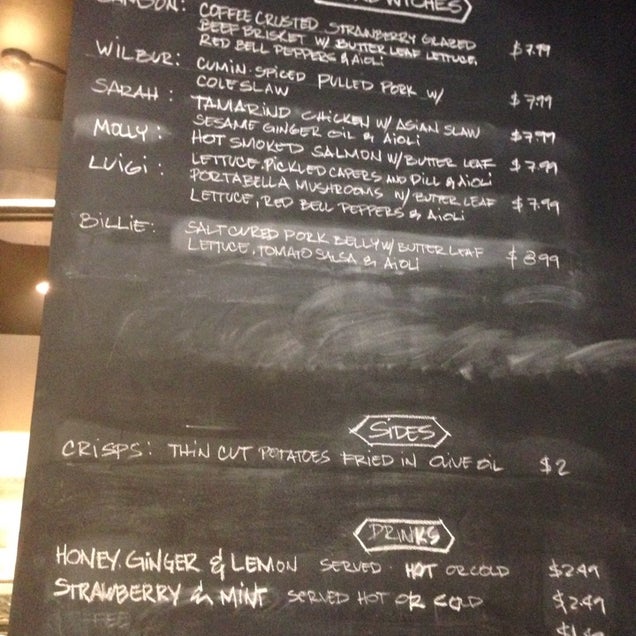 COFFEE CRUSTED STRAWBERRY GLAZED $7.99
BEEF BRISKET W/ BUTTER LEAF LETTUCE,
RED BELL PEPPERS & AIOLI
WILBUR: CUMIN-SPICED PULLED PORK W/ $7.99
COLESLAW
SARAH: TAMARIND CHICKEN W/ ASIAN SLAW $7.99
SESAME GINGER OIL & AIOLI
MOLLY: HOT SMOKED SALMON W/ BUTTER LEAF $7.99
LETTUCE, PICKLED CAPERS AND DILL & AIOLI
LUIGI: PORTABELLA MUSHROOMS W/ BUTTER LEAF $7.99
LETTUCE, RED BELL PEPPERS & AIOLI
BILLIE: SALT CURED PORK BELLY W/ BUTTER LEAF $8.99
LETTUCE, TOMATO SALSA & AIOLI
SIDES
CRISPS: THIN CUT POTATOES FRIED IN OLIVE OIL $2
DRINKS
HONEY, GINGER & LEMON SERVED HOT OR COLD $2.49
STRAWBERRY & MINT SERVED HOT OR COLD $2.49